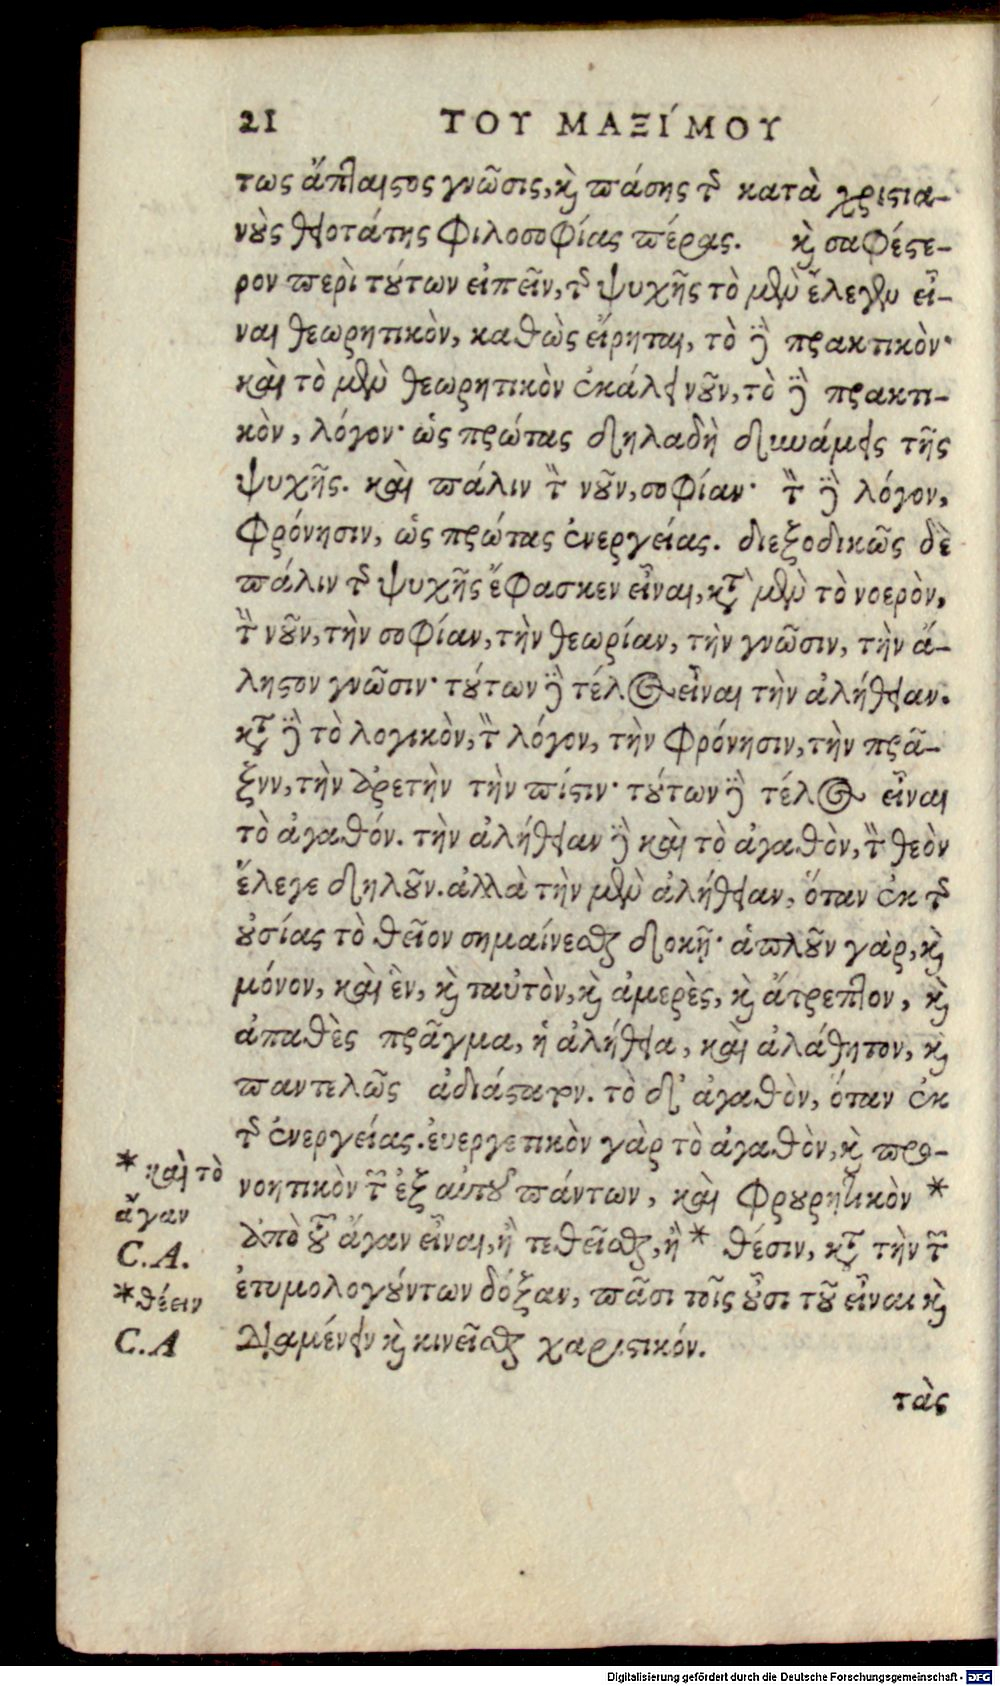 21 ΤΟΥ ΜΑΞΊΜΟΥ
τως ἄπλαιστος γνῶσις, καὶ πάσης τῆς κατὰ χριστια-
νοὺς θειοτάτης φιλοσοφίας πέρας. καὶ σαφέστε-
ρον περὶ τούτων εἰπεῖν, τῆς ψυχῆς τὸ μὲν ἔλεγεν εἶ-
ναι θεωρητικὸν, καθὼς εἴρηται, τὸ δὲ πρακτικὸν·
καὶ τὸ μὲν θεωρητικὸν ἐκάλει νοῦν, τὸ δὲ πρακτι-
κὸν, λόγον· ὡς πρώτας δηλαδὴ δυνάμεις τῆς
ψυχῆς. καὶ πάλιν τὸν νοῦν, σοφίαν· τὸν δὲ λόγον,
φρόνησιν, ὡς πρώτας ἐνεργείας. διεξοδικῶς δὲ
πάλιν τῆς ψυχῆς ἔφασκεν εἶναι, κατὰ μὲν τὸ νοερὸν,
τὸν νοῦν, τὴν σοφίαν, τὴν θεωρίαν, τὴν γνῶσιν, τὴν ἄ-
ληστον γνῶσιν· τούτων δὲ τέλος εἶναι τὴν ἀλήθειαν.
κατὰ δὲ τὸ λογικὸν, τὸν λόγον, τὴν φρόνησιν, τὴν πρᾶ-
ξνν, τὴν ἀρετὴν τὴν πίστιν· τούτων δὲ τέλος εἶναι
τὸ ἀγαθόν. τὴν ἀλήθειαν δὲ καὶ τὸ ἀγαθὸν, τὸν θεὸν
ἔλεγε δηλοῦν. ἀλλὰ τὴν μὲν ἀλήθειαν, ὅταν ἐκ τῆς
οὐσίας τὸ θεῖον σημαίνεσθαι δοκῇ· ἁπλοῦν γὰρ, καὶ
μόνον, καὶ ἓν, καὶ ταὐτὸν, καὶ ἀμερὲς, καὶ ἄτρεπτον, καὶ
ἀπαθὲς πρᾶγμα, ἡ ἀλήθεια, καὶ ἀλάθητον, καὶ
παντελῶς ἀδιάστατον. τὸ δ' ἀγαθὸν, ὅταν ἐκ
τῆς ἐνεργείας. ἐυεργετικὸν γὰρ τὸ ἀγαθὸν, καὶ προ-
νοητικὸν τῶν ἐξ αὐτοῦ πάντων, καὶ φρουρητικὸν *
ἀπὸ τοῦ ἄγαν εἶναι, ἢ τεθεῖσθαι, ἢ * θέσιν, κατὰ τὴν τῶν
ἐτυμολογούντων δόξαν, πᾶσι τοῖς οὖσι τοῦ εἶναι καὶ
διαμένειν καὶ κινεῖσθαι χαριστικόν.
* καὶ τὸ
ἄγαν
C.A.
* θέειν
C.A
τὰς
Digitalisierung gefördert durch die Deutsche Forschungsgemeinschaft - DFG